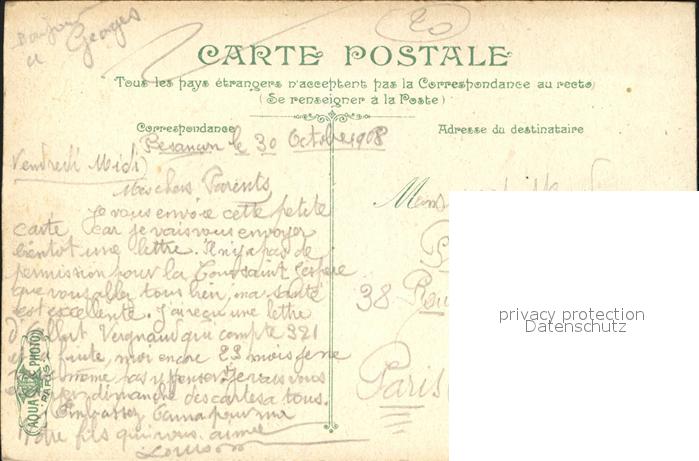 Bonjour
a Georges
20
CARTE POSTALE
Tous les pays étrangers n'acceptent pas la Correspondance au recto
(Se renseigner à la Poste)
Correspondance
Adresse du destinataire
Besançon le 30 Octobre 1908
Vendredi Midi
Mes chers Parents
Je vous envoie cette petite
carte car je vais vous envoyer
bientot une lettre. Il n'y a pas de
permission pour la Toussaint j'espère
que vous allez tous bien, ma santé
est excellente. J'ai reçu une lettre
d'Albert Vergnaud qui compte 321
et la fuite, moi encore 23 mois je ne
même pas y penser. Je vais vous
dimanche des cartes a tous.
Embrassez pour moi
Votre fils qui vous aime
Louis
38 Rue
Paris
AQUA PHOTO
PARIS
privacy protection
Datenschutz